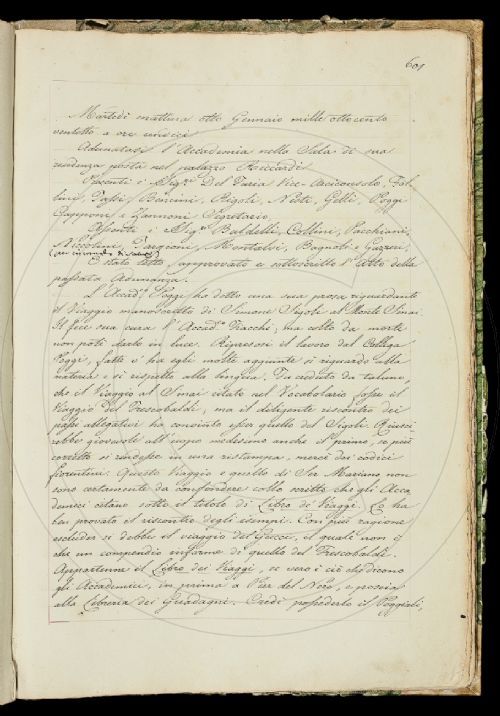 601
Martedì mattina otto Gennaio mille ottocento
ventotto a ore undici
Adunatasi l'Accademia nella Sala di sua
residenza posta nel palazzo Riccardi
Presenti i Sigri Del Furia Vice-Arciconsolo, Fol-
lini, Tassi, Bencini, Rigoli, Nesti, Gelli, Poggi
Capponi e Zannoni Segretario,
Assenti i Sigri Baldelli, Collini, Pacchiani,
Niccolini, Targioni, Montalvi, Bagnoli e Gazzeri,
È stato letto approvato e sottoscritto l'atto della
passata Adunanza.
L'Accad.o Poggi ha detto una sua prosa riguardante
il Viaggio manoscritto di Simone Sigoli al Monte Sinai.
Il fece sua cura l'Accad.o Fiacchi, ma colto da morte
non potè darlo in luce. Ripresosi il lavoro dal Collega
Poggi, fatte v'ha egli molte aggiunte sì riguardo alla
materia e sì rispetto alla lingua. Fu creduto da taluno,
che il Viaggio al Sinai citato nel Vocabolario fosse il
Viaggio del Frescobaldi, ma il diligente riscontro dei
passi allegativi ha convinto esser quello del Sigoli. Riusci-
rebbe giovevole all'uopo medesimo anche il primo, se più
corretto si rendesse in una ristampa, mercè dei codici
fiorentini. Questo Viaggio e quello di Ser Mariano non
sono certamente da confondere collo scritto che gli Acca-
demici citano sotto il titolo di Libro de' Viaggi. Ce ha
ben provato il riscontro degli esempi. Con più ragione
escluder si debbe il viaggio del Gucci, il quale non è
che un compendio informe di quello del Frescobaldi.
Appartenne il Libro dei Viaggi, se vero è ciò che dicono
gli Accademici, in prima a Pier del Nero, e poscia
alla Libreria dei Guadagni. Credè possederlo il Poggiali,